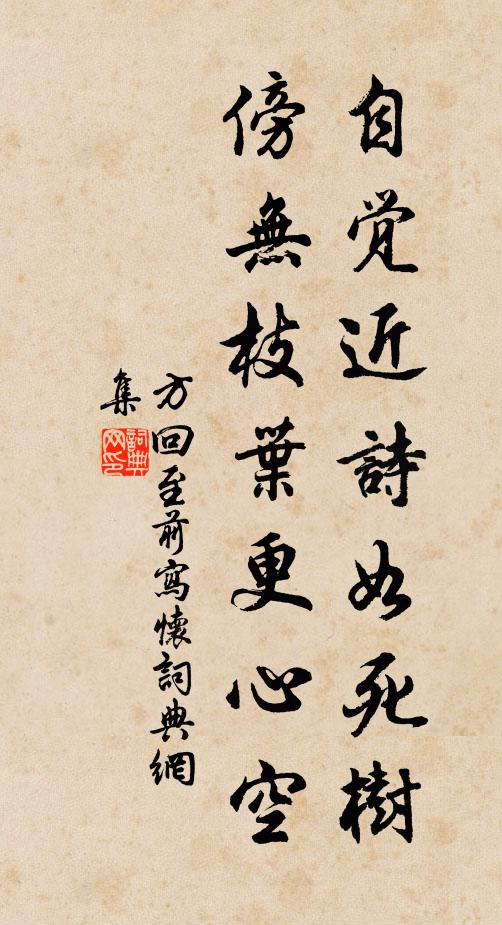 自覺近詩如死樹
傍無枝葉更心空
方回至前寫懷詞典網
集
詞典網印